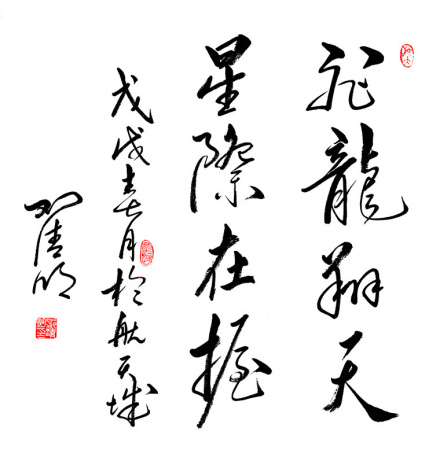 飛龍翔天
星際在握
戊戌春月於航天城